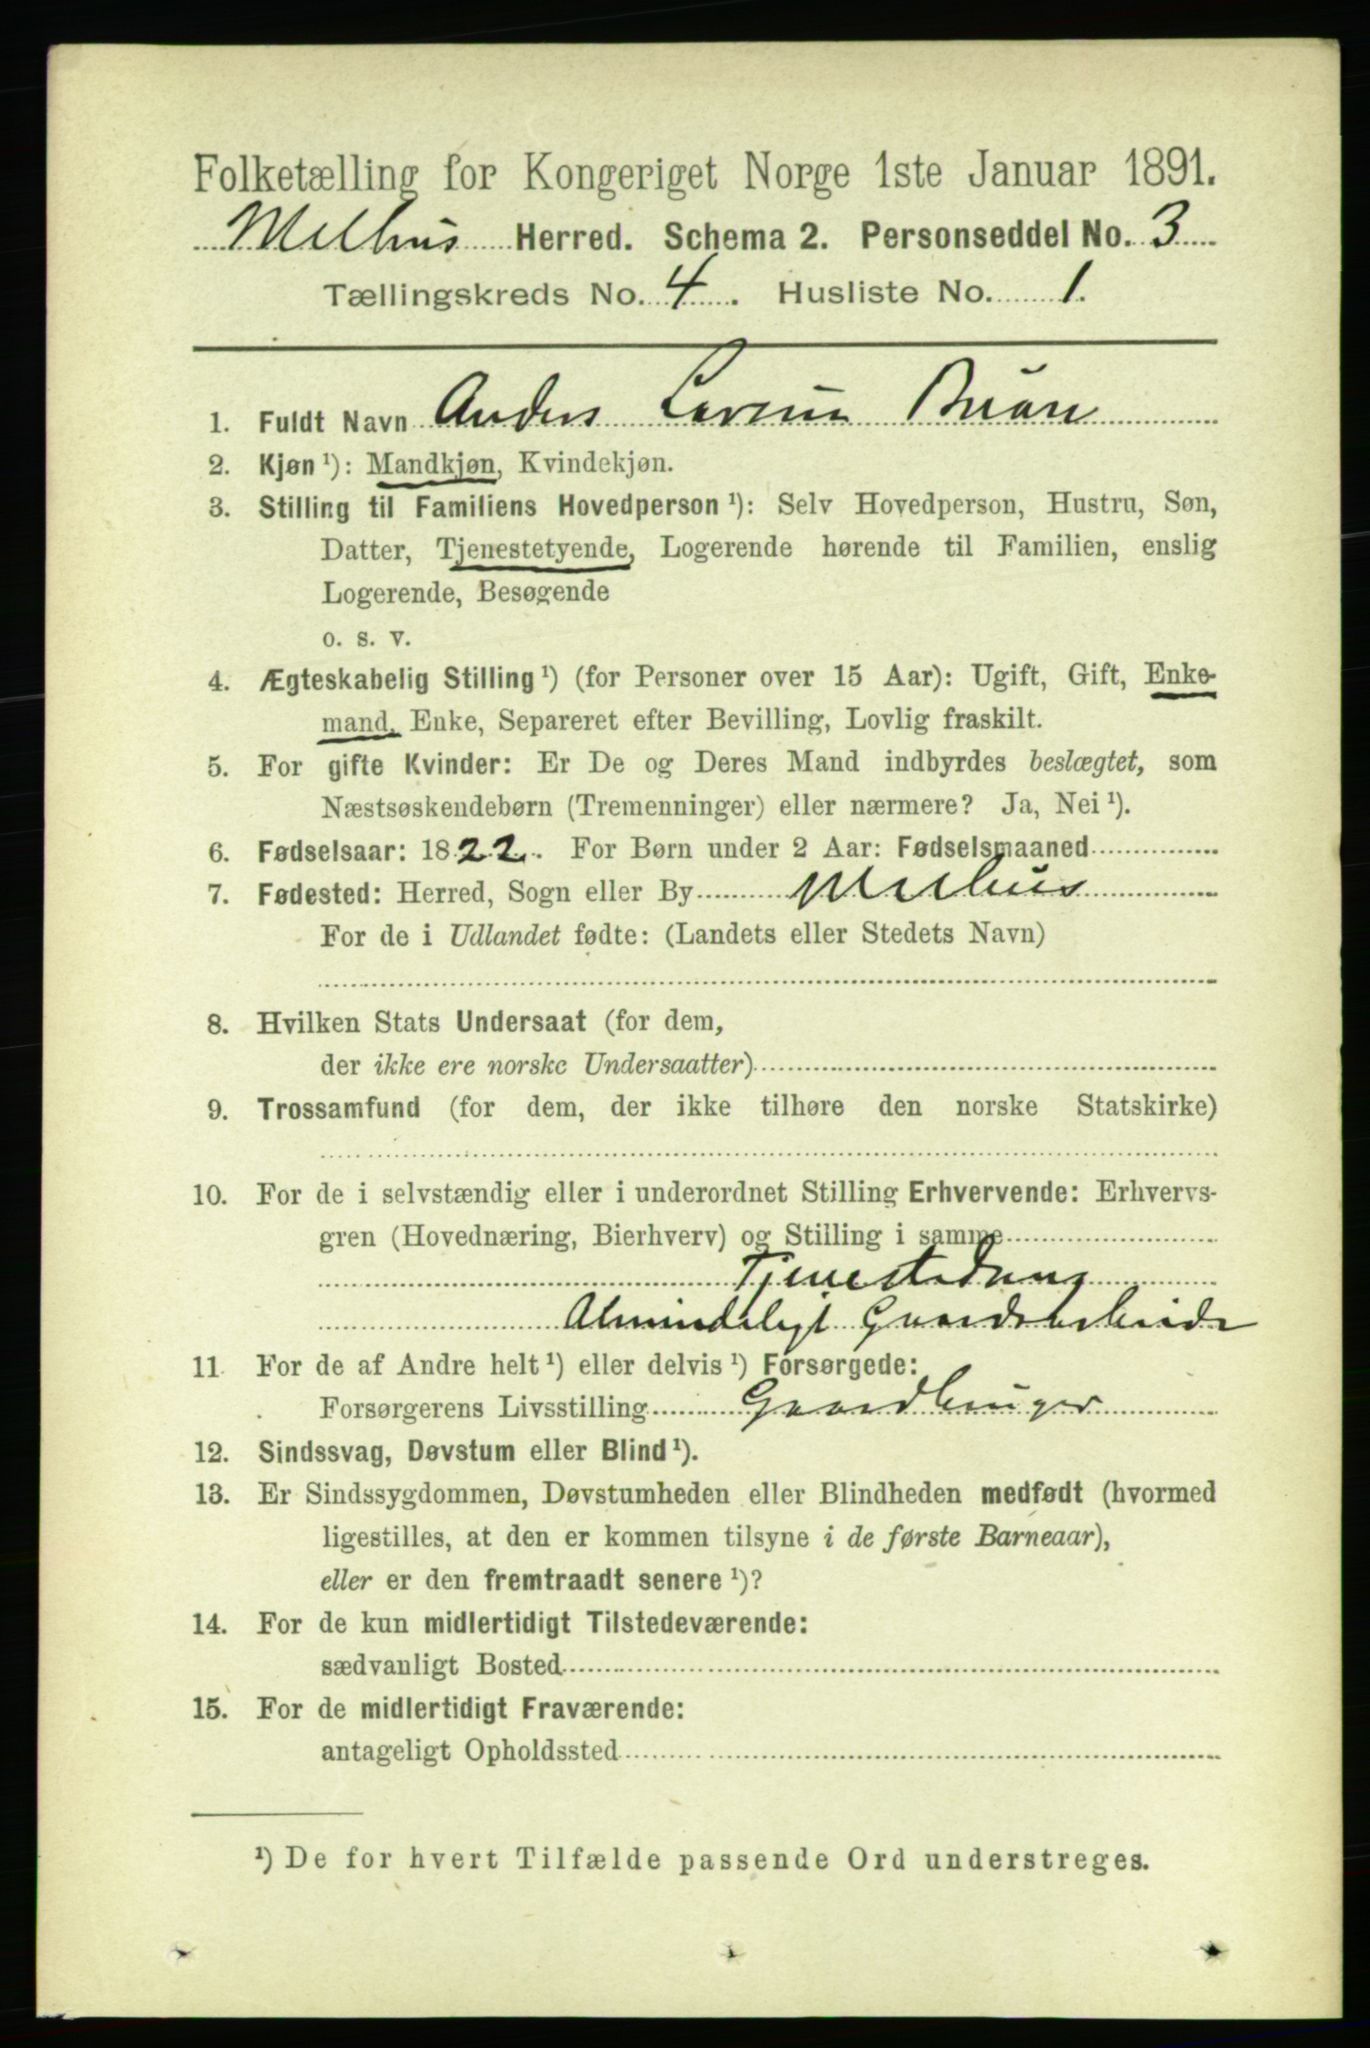 Folketælling for Kongeriget Norge 1ste Januar 1891.
Melhus Herred. Schema 2. Personseddel No. 3
Tællingskreds No. 4. Husliste No. 1.
1. Fuldt Navn Anders
2. Kjøn ¹): Mandkjøn, Kvindekjøn.
3. Stilling til Familiens Hovedperson ¹): Selv Hovedperson, Hustru, Søn,
Datter, Tjenestetyende, Logerende hørende til Familien, enslig
Logerende, Besøgende
o. s. v.
4. Ægteskabelig Stilling ¹) (for Personer over 15 Aar): Ugift, Gift, Enke-
mand, Enke, Separeret efter Bevilling, Lovlig fraskilt.
5. For gifte Kvinder: Er De og Deres Mand indbyrdes beslægtet, som
Næstsøskendebørn (Tremenninger) eller nærmere? Ja, Nei ¹).
6. Fødselsaar: 1822. For Børn under 2 Aar: Fødselsmaaned
7. Fødested: Herred, Sogn eller By Melhus
For de i Udlandet fødte: (Landets eller Stedets Navn)
8. Hvilken Stats Undersaat (for dem,
der ikke ere norske Undersaatter)
9. Trossamfund (for dem, der ikke tilhøre den norske Statskirke)
10. For de i selvstændig eller i underordnet Stilling Erhvervende: Erhvervs-
gren (Hovednæring, Bierhverv) og Stilling i samme
Tjenestedreng
Almindeligt Gaardsarbeide
11. For de af Andre helt ¹) eller delvis ¹) Forsørgede:
Forsørgerens Livsstilling Gaardbruger
12. Sindssvag, Døvstum eller Blind ¹).
13. Er Sindssygdommen, Døvstumheden eller Blindheden medfødt (hvormed
ligestilles, at den er kommen tilsyne i de første Barneaar),
eller er den fremtraadt senere ¹)?
14. For de kun midlertidigt Tilstedeværende:
sædvanligt Bosted
15. For de midlertidigt Fraværende:
antageligt Opholdssted
¹) De for hvert Tilfælde passende Ord understreges.